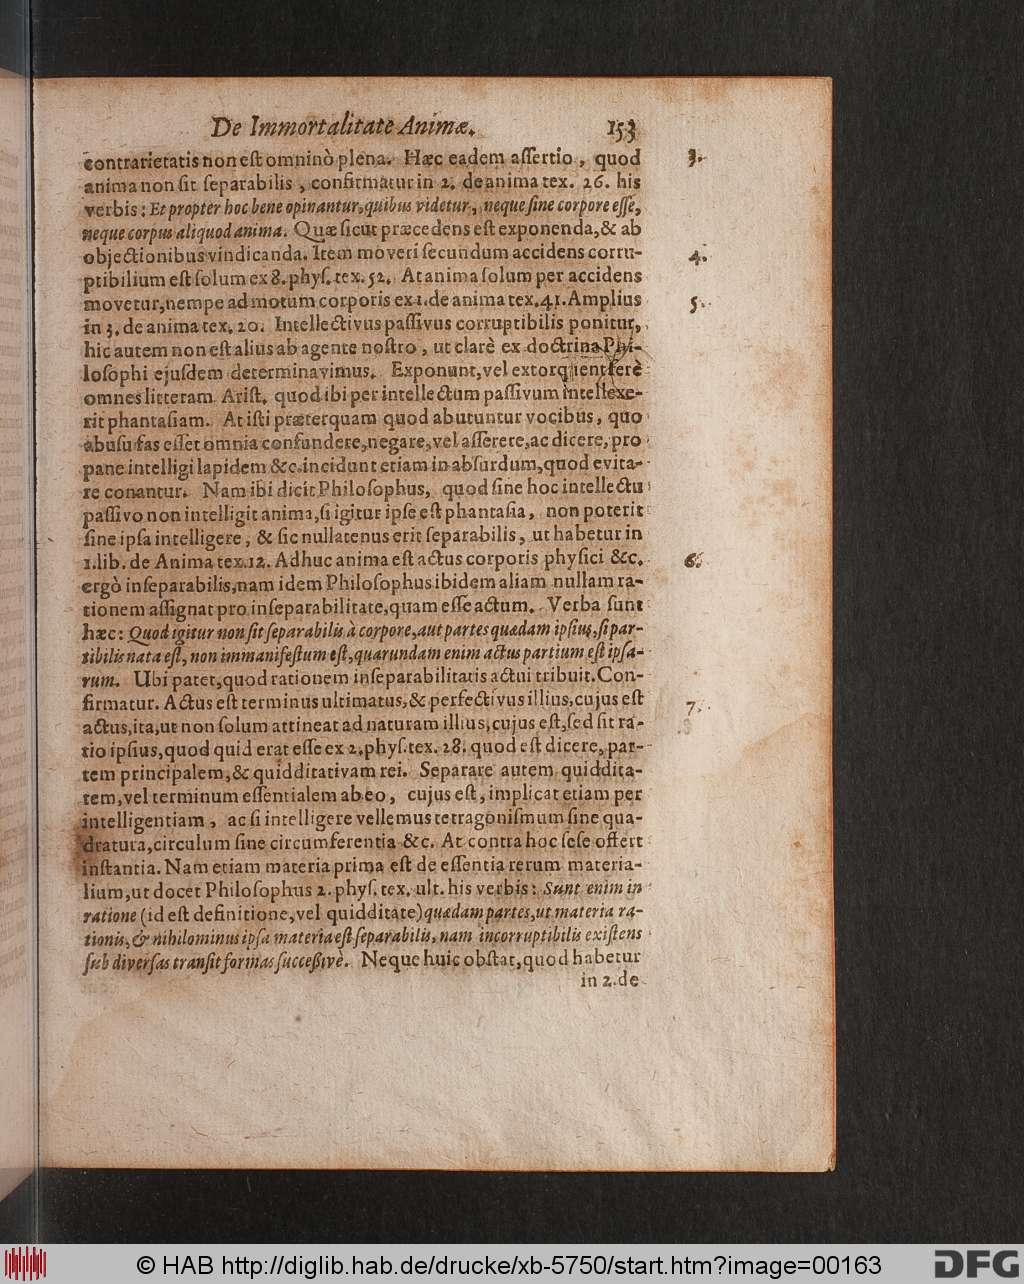 De Immortalitate Animæ. 153
contrarietatis non eſt omninò plena. Hæc eadem aſſertio, quod 3.
anima non ſit ſeparabilis, confirmatur in 2. de anima tex. 26. his
verbis: Et propter hoc bene opinantur, quibus videtur, neque ſine corpore eſſe,
neque corpus aliquod anima. Quæ ſicut præcedens eſt exponenda, & ab
objectionibus vindicanda. Item moveri ſecundum accidens corru- 4.
ptibilium eſt ſolum ex 8. phyſ. tex. 52. At anima ſolum per accidens
movetur, nempe ad motum corporis ex 1. de anima tex. 41. Amplius 5.
in 3. de anima tex. 20. Intellectivus paſſivus corruptibilis ponitur,
hic autem non eſt alius ab agente noſtro, ut clarè ex doctrina Phi-
loſophi ejuſdem determinavimus. Exponunt, vel extorquent ferè
omnes litteram Ariſt. quod ibi per intellectum paſſivum intellexe-
rit phantaſiam. At iſti præterquam quod abutuntur vocibus, quo
abuſu fas eſſet omnia confundere, negare, vel aſſerere, ac dicere, pro
pane intelligi lapidem &c. incidunt etiam in abſurdum, quod evita-
re conantur. Nam ibi dicit Philoſophus, quod ſine hoc intellectu
paſſivo non intelligit anima, ſi igitur ipſe eſt phantaſia, non poterit
ſine ipſa intelligere, & ſic nullatenus erit ſeparabilis, ut habetur in
1. lib. de Anima tex. 12. Adhuc anima eſt actus corporis phyſici &c. 6.
ergò inſeparabilis, nam idem Philoſophus ibidem aliam nullam ra-
tionem aſſignat pro inſeparabilitate, quam eſſe actum. Verba ſunt
hæc: Quod igitur non ſit ſeparabilis à corpore, aut partes quædam ipſius, ſi par-
tibilis nata eſt, non immanifeſtum eſt, quarundam enim actus partium eſt ipſa-
rum. Ubi patet, quod rationem inſeparabilitatis actui tribuit. Con-
firmatur. Actus eſt terminus ultimatus, & perfectivus illius, cujus eſt 7.
actus, ita, ut non ſolum attineat ad naturam illius, cujus eſt, ſed ſit ra-
tio ipſius, quod quid erat eſſe ex 2. phyſ. tex. 28. quod eſt dicere, par-
tem principalem, & quidditativam rei. Separare autem quiddita-
tem, vel terminum eſſentialem ab eo, cujus eſt, implicat etiam per
intelligentiam, ac ſi intelligere vellemus tetragoniſmum ſine qua-
dratura, circulum ſine circumferentia &c. At contra hoc ſeſe offert
inſtantia. Nam etiam materia prima eſt de eſſentia rerum materia-
lium, ut docet Philoſophus 2. phyſ. tex. ult. his verbis: Sunt enim in
ratione (id eſt definitione, vel quidditate) quædam partes, ut materia ra-
tionis, & nihilominus ipſa materia eſt ſeparabilis, nam incorruptibilis exiſtens
ſub diverſas tranſit formas ſucceſſivè. Neque huic obſtat, quod habetur
in 2. de
© HAB http://diglib.hab.de/drucke/xb-5750/start.htm?image=00163
DFG